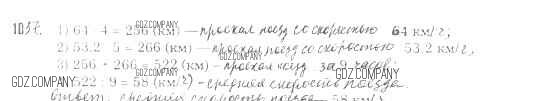 1037. 1) 64 · 4 = 256 (км) — проехал поезд со скоростью 64 км/ч;
GDZ.COMPANY
2) 53,2 · 5 = 266 (км) — проехал поезд со скоростью 53,2 км/ч,
GDZ.COMPANY
3) 256 + 266 = 522 (км) — проехал поезд за 9 часов;
GDZ.COMPANY
522 : 9 = 58 (км/ч) - средняя скорость поезда.
GDZ.COMPANY GDZ.COMPANY
Ответ: средняя скорость поезда — 58 км/ч